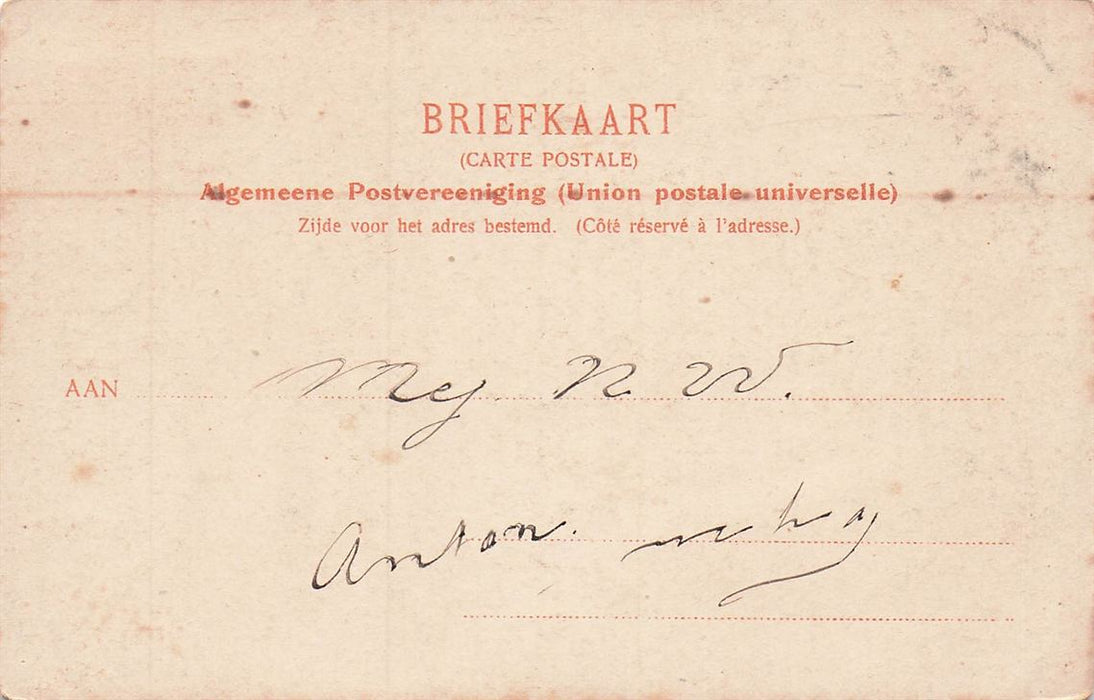 BRIEFKAART
(CARTE POSTALE)
Algemeene Postvereeniging (Union postale universelle)
Zijde voor het adres bestemd. (Côté réservé à l'adresse.)
AAN Mej N W.
Anton.